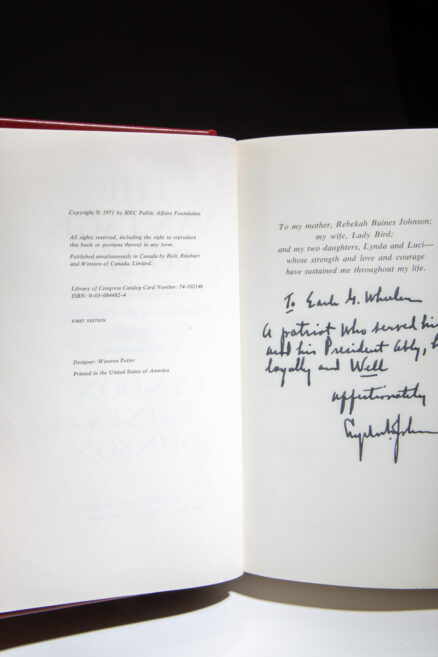 Copyright © 1971 by HEC Public Affairs Foundation
All rights reserved, including the right to reproduce
this book or portions thereof in any form.
Published simultaneously in Canada by Holt, Rinehart
and Winston of Canada, Limited.
Library of Congress Catalog Card Number: 74-102146
ISBN: 0-03-084492-4
FIRST EDITION
Designer: Winston Potter
Printed in the United States of America
To my mother, Rebekah Baines Johnson;
my wife, Lady Bird;
and my two daughters, Lynda and Luci—
whose strength and love and courage
have sustained me throughout my life.
To Earle G. Wheeler
A patriot who served his
and his President Ably,
loyally and Well
affectionately
Lyndon B. Johnson